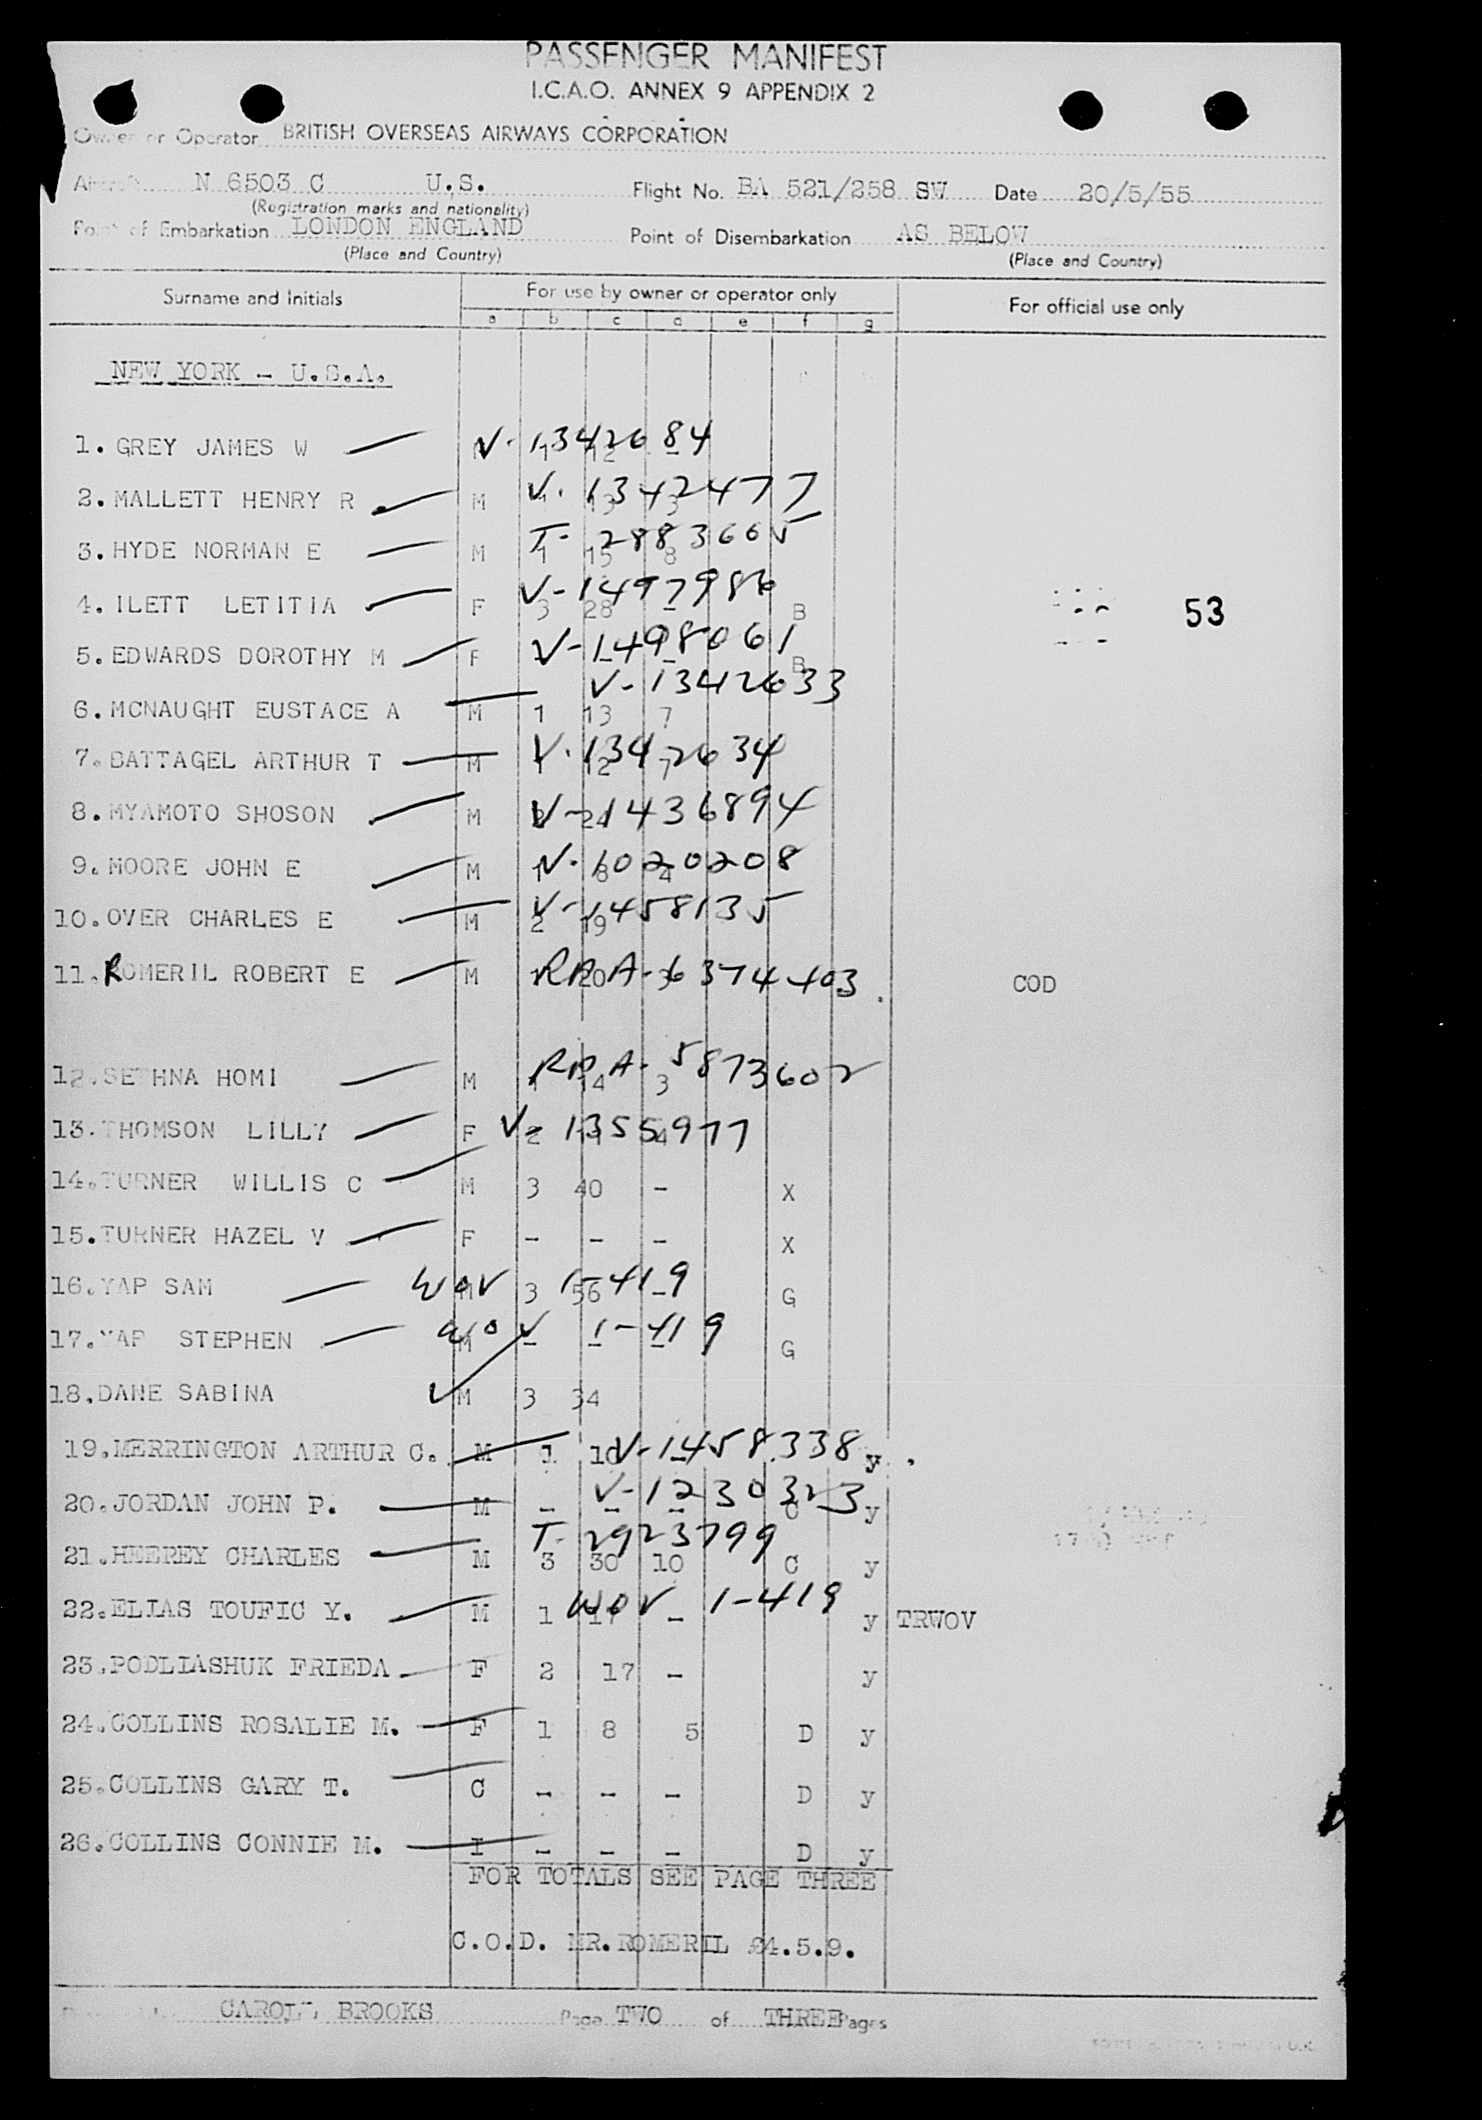 PASSENGER MANIFEST
I.C.A.O. ANNEX 9 APPENDIX 2
Owner or Operator BRITISH OVERSEAS AIRWAYS CORPORATION
Aircraft N 6503 C U.S. Flight No. BA 521/258 SW Date 20/5/55
(Registration marks and nationality)
Point of Embarkation LONDON ENGLAND Point of Disembarkation AS BELOW
(Place and Country) (Place and Country)
Surname and Initials For use by owner or operator only For official use only
a b c d e f g
NEW YORK - U.S.A.
1. GREY JAMES W V-1342684 1 12 -
2. MALLETT HENRY R M V. 1342477 1 13 3
3. HYDE NORMAN E M T- 2883665 1 15 8
4. ILETT LETITIA F V-1497986 3 28 - B 53
5. EDWARDS DOROTHY M F V-1498061 - - B
6. MCNAUGHT EUSTACE A M V-1342633 1 13 7
7. BATTAGEL ARTHUR T M V.1342634 1 12 7
8. MYAMOTO SHOSON M V-1436894 24
9. MOORE JOHN E M V-1020208 1 8 4
10. OVER CHARLES E M V-1458135 2 19
11. ROMERIL ROBERT E M RPA-6374403 20 3 COD
12. SETHNA HOMI M RPA-5873602 1 14 3
13. THOMSON LILLY F V- 1355977 2 4
14. TURNER WILLIS C M 3 40 - X
15. TURNER HAZEL V F - - - X
16. YAP SAM WOV 1-419 M 3 56 - G
17. YAP STEPHEN WOV 1-419 M - - - G
18. DANE SABINA M 3 34
19. MERRINGTON ARTHUR C. M 1 10 V-1458338 y
20. JORDAN JOHN P. M - - - V-1230323 C y
21. HEEREY CHARLES M T-2923799 3 30 10 C y
22. ELIAS TOUFIC Y. M 1 17 - WOV 1-419 y TRWOV
23. PODLIASHUK FRIEDA F 2 17 - y
24. COLLINS ROSALIE M. F 1 8 5 D y
25. COLLINS GARY T. C - - - D y
26. COLLINS CONNIE M. I - - - D y
FOR TOTALS SEE PAGE THREE
C.O.D. MR.ROMERIL £4.5.9.
CAROL BROOKS Page TWO of THREE Pages